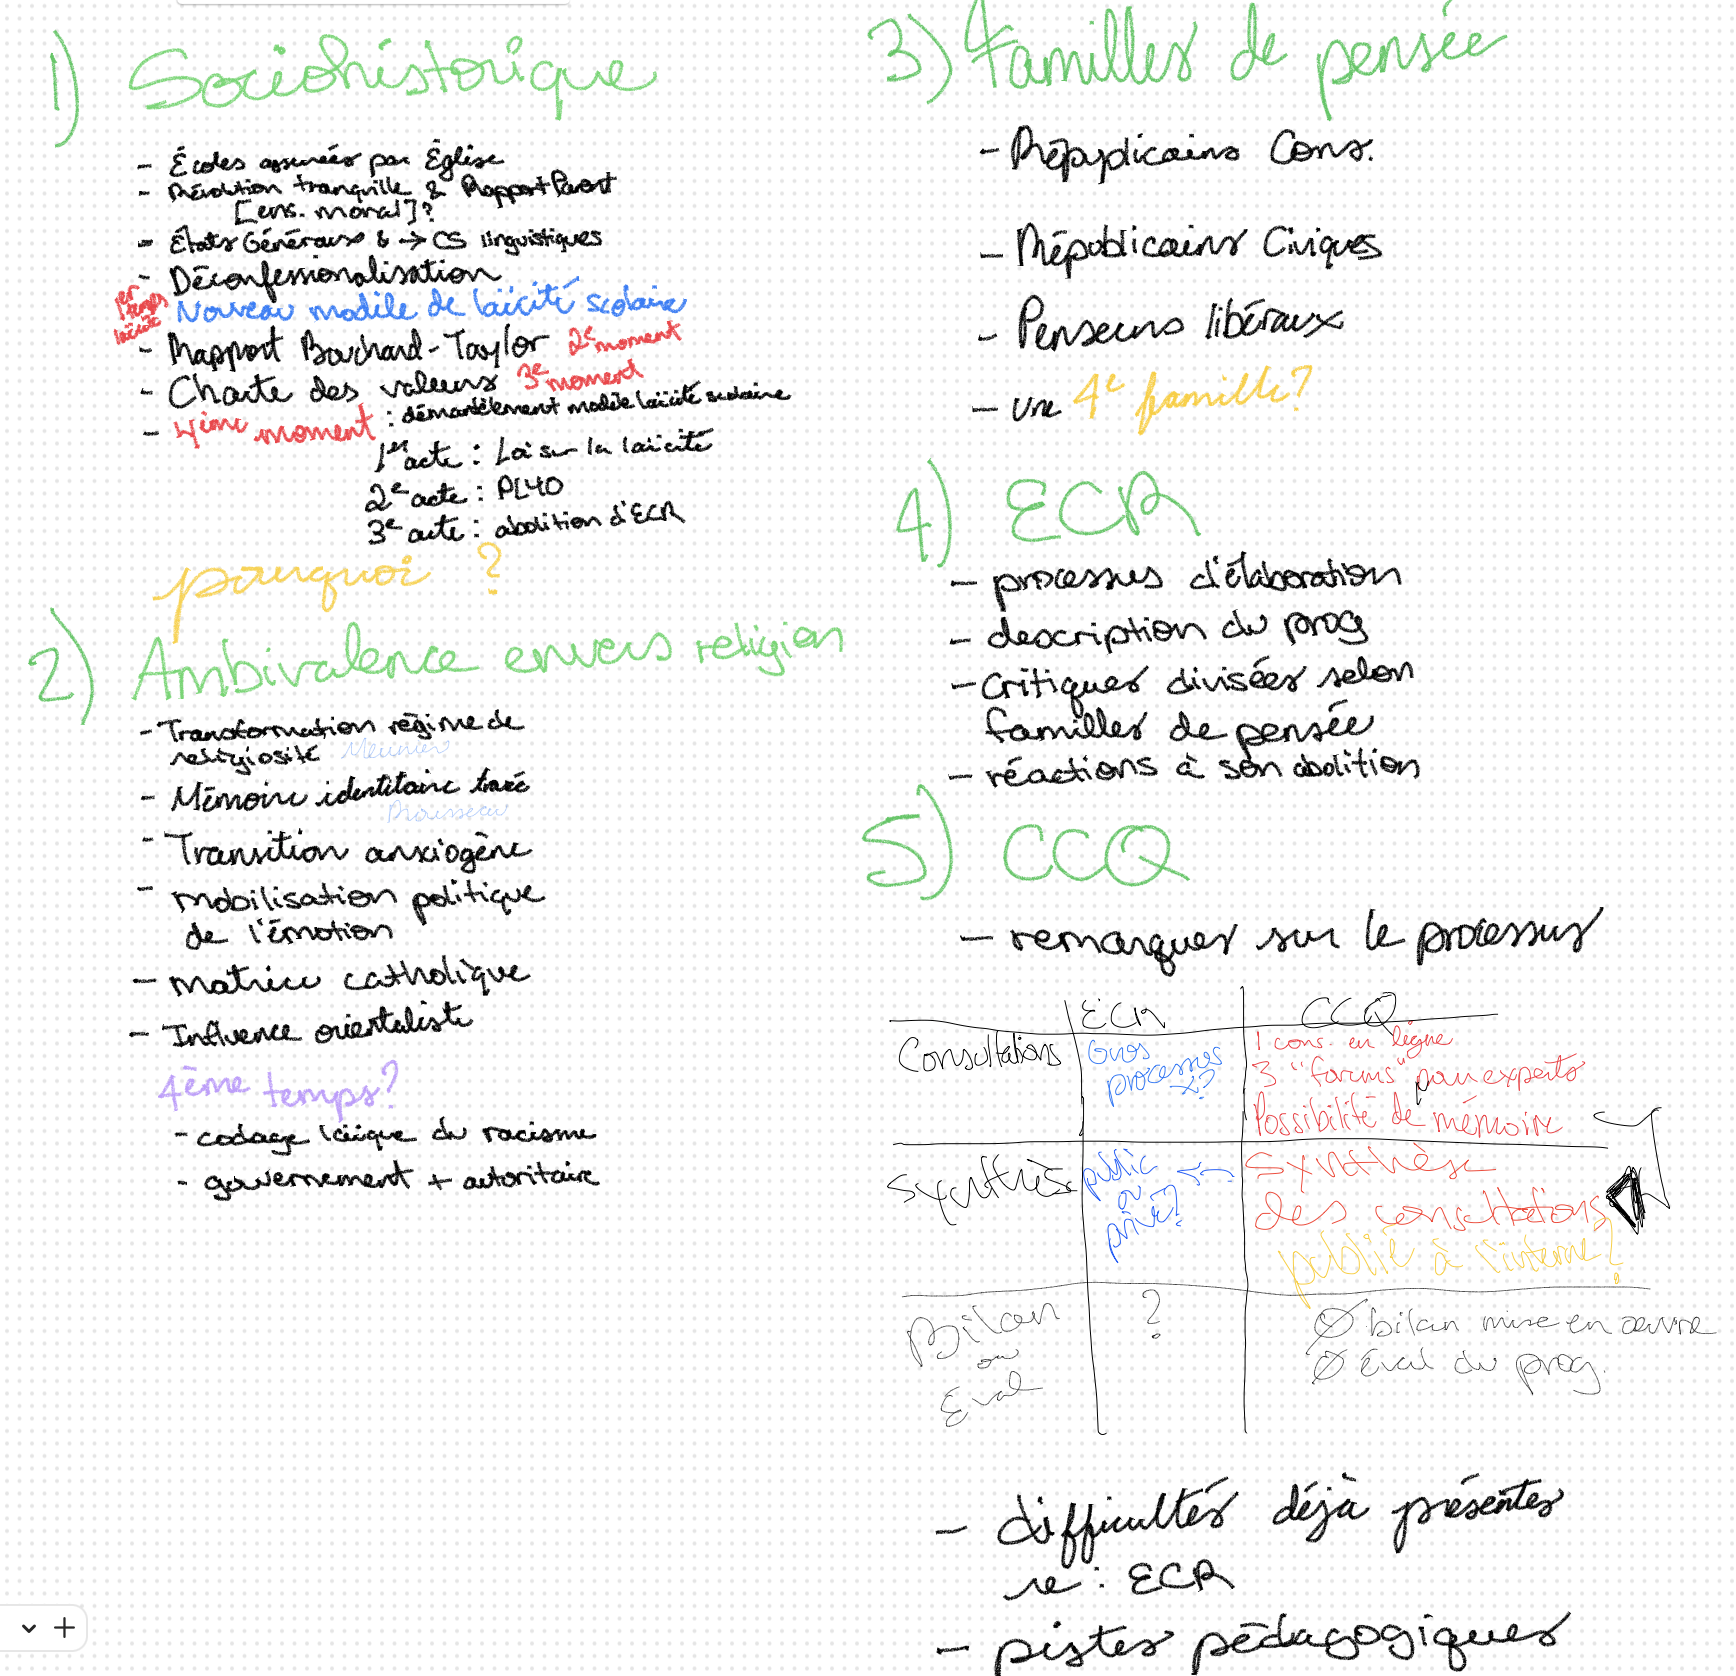 1) Sociohistorique
- Écoles assurées par Église
- Révolution tranquille & Rapport Parent
[ens. moral]?
- États Généraux & → CS linguistiques
- Déconfessionalisation
1er temps laïcité
Nouveau modèle de laïcité scolaire
- Rapport Bouchard-Taylor 2e moment
- Charte des valeurs 3e moment
- 4ième moment : démantèlement modèle laïcité scolaire
1er acte : Loi sur la laïcité
2e acte : PL40
3e acte : abolition d'ECR
pourquoi ?
2) Ambivalence envers religion
- Transformation régime de
religiosité Meunier
- Mémoire identitaire
Rousseau
- Transition anxiogène
- mobilisation politique
de l'émotion
- matrice catholique
- Influence orientaliste
4ème temps?
- codage laïque du racisme
- gouvernement + autoritaire
3) 4 familles de pensée
- Républicains Cons.
- Républicains Civiques
- Penseurs libéraux
- Une 4e famille?
4) ECR
- processus d'élaboration
- description du prog
- Critiques divisées selon
familles de pensée
- réactions à son abolition
5) CCQ
- remarques sur le processus
ECR CCQ
Consultations
Gros
processus
x?
1 cons. en ligne
3 "forums" pour experts
Possibilité de mémoire
Synthèse
public
ou
privé?
Synthèse
des consultations
publié à l'interne?
Bilan
ou
Éval
?
Ø bilan mise en œuvre
Ø éval du prog.
- difficultés déjà présentes
re: ECR
- pistes pédagogiques